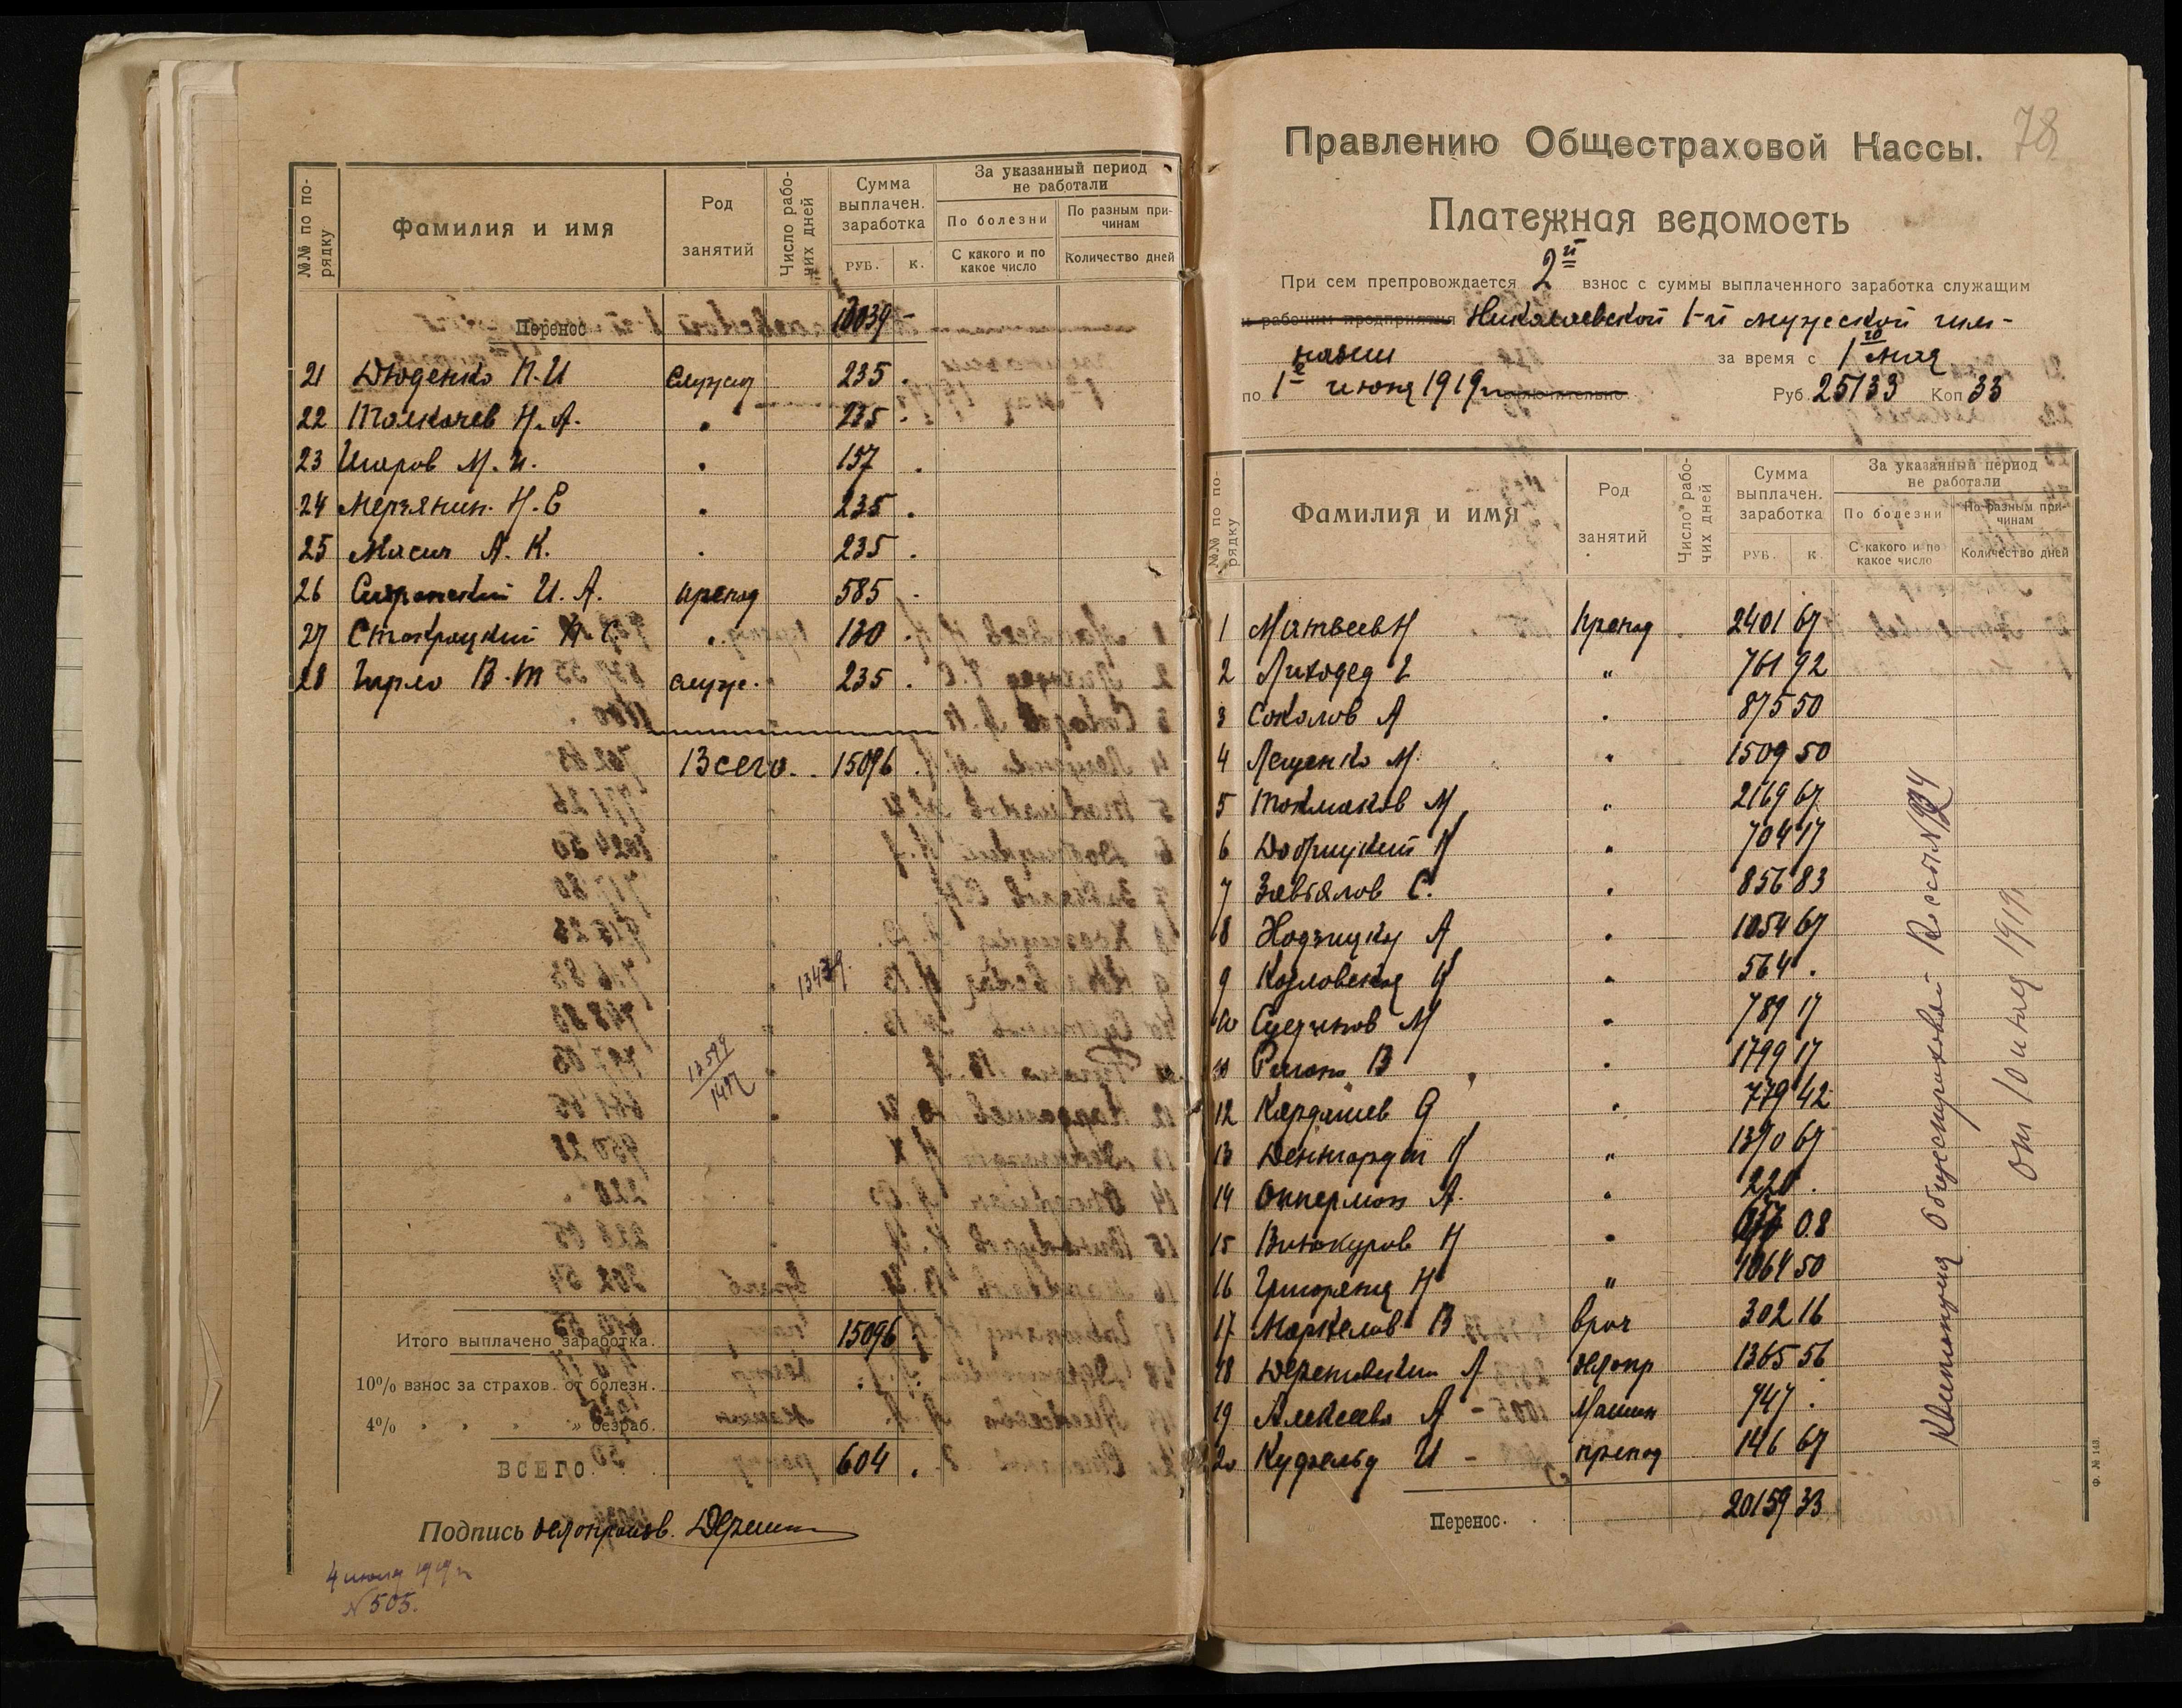 №№ по порядку
Фамилия и имя
Род занятий
Число рабочих дней
Сумма выплачен. заработка
РУБ. К.
За указанный период не работали
По болезни
С какого и по какое число
По разным причинам
Количество дней
Перенос 13039 -
21 Дюденко П.И служ 235 .
22 Толкачев Н.А. " 235 .
23 М.И. " 157 .
24 Мерзянин Н.Е " 235 .
25 Масич А.К. " 235 .
26 И.А. препод 585 .
27 130 .
28 Гирло В.Т служ. " 235 .
Всего. . 15096 .
13439.
12599
Итого выплачено заработка. 15096
10% взнос за страхов. от болезн.
4% " " " безраб.
ВСЕГО. 604 .
Подпись делопроизв.
4 июня 1919 г
N 505.
78
Правлению Общестраховой Кассы.
Платежная ведомость
При сем препровождается 2й взнос с суммы выплаченного заработка служащим
и рабочим предприятия Николаевской 1-й мужской гим-
назии за время с 1го мая
по 1е июня 1919 г включительно Руб. 25133 Коп 33
№№ по порядку
Фамилия и имя
Род занятий
Число рабочих дней
Сумма выплачен. заработка
РУБ. К
За указанный период не работали
По болезни
С какого и по какое число
По разным причинам
Количество дней
1 Матвеев Н препод 2401 67
2 Лиходед Г " 761 92
3 Соколов А " 875 50
4 Лещенко М. " 1509 50
5 Токмаков М " 2169 67
6 Добрицкий Н " 704 17
7 Завьялов С. " 856 83
8 А " 1054 67
9 Козловская Н " 564 .
10 М " 789 17
11 В " 1799 17
12 Кардашев " 779 42
13 Денгардт Н " 1390 67
14 Опперман А. " 220 .
15 Винокуров Н " 08
16 Н " 1064 50
17 Маркелов В врач 302 16
18 А делопр 1365 56
19 Алексеева А - Машин 747 .
20 Кудрельд И - препод 146 67
Перенос. 20159 33
Квитанция Общестраховой Кассы
от 10 июня 1919
Ф. № 143.